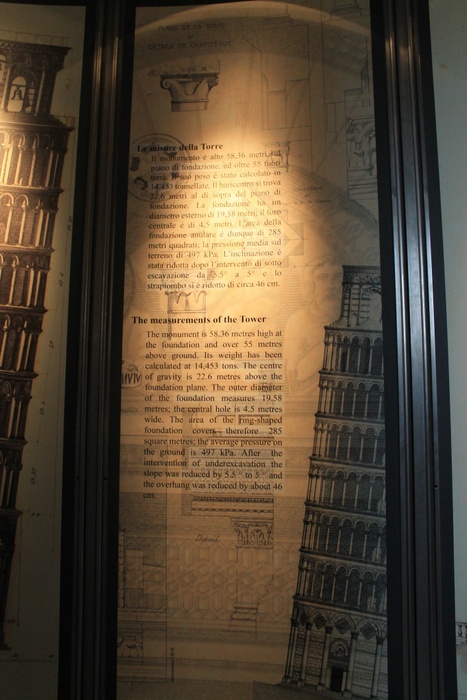 PLANO DE LA TOUR
DETAILS DE CHAPITEAUX
Le misure della Torre
Il monumento è alto 58,36 metri sul
piano di fondazione, ed oltre 55 fuori
terra. Il suo peso è stato calcolato in
14.453 tonnellate. Il baricentro si trova
22,6 metri al di sopra del piano di
fondazione. La fondazione ha un
diametro esterno di 19,58 metri; il foro
centrale è di 4,5 metri. L'area della
fondazione anulare è dunque di 285
metri quadrati; la pressione media sul
terreno di 497 kPa. L'inclinazione è
stata ridotta dopo l'intervento di sotto
escavazione da 5.5° a 5° e lo
strapiombo si è ridotto di circa 46 cm.
The measurements of the Tower
The monument is 58.36 metres high at
the foundation and over 55 metres
above ground. Its weight has been
calculated at 14,453 tons. The centre
of gravity is 22.6 metres above the
foundation plane. The outer diameter
of the foundation measures 19.58
metres; the central hole is 4.5 metres
wide. The area of the ring-shaped
foundation covers therefore 285
square metres; the average pressure on
the ground is 497 kPa. After the
intervention of underexcavation the
slope was reduced by 5.5 ° to 5 ° and
the overhang was reduced by about 46
cm.